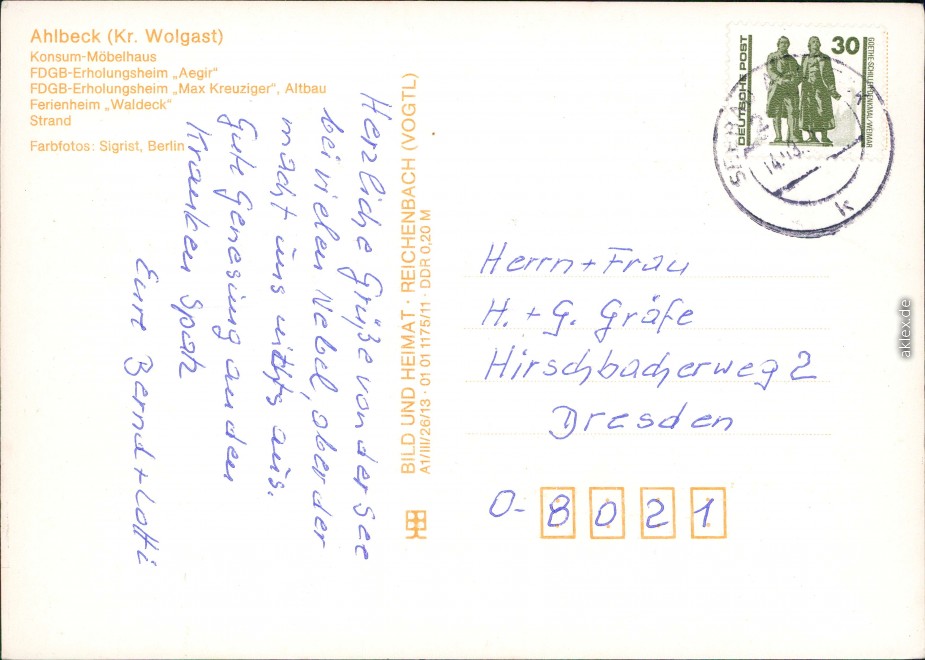 Ahlbeck (Kr. Wolgast)
Konsum-Möbelhaus
FDGB-Erholungsheim „Aegir“
FDGB-Erholungsheim „Max Kreuziger“, Altbau
Ferienheim „Waldeck“
Strand
Farbfotos: Sigrist, Berlin
Herzliche Grüße von der See
bei vielen Nebel, aber der
macht uns nichts aus.
Gute Genesung an den
Kranken Spatz
Eure Bernd + Lotti
BILD UND HEIMAT · REICHENBACH (VOGTL)
A1/III/26/13 · 01 01 1175/11 · DDR 0,20 M
DEUTSCHE POST
30
GOETHE-SCHILLER-DENKMAL/WEIMAR
Herrn + Frau
H. + G. Gräfe
Hirschbacherweg 2
Dresden
O- 8021
aklex.de